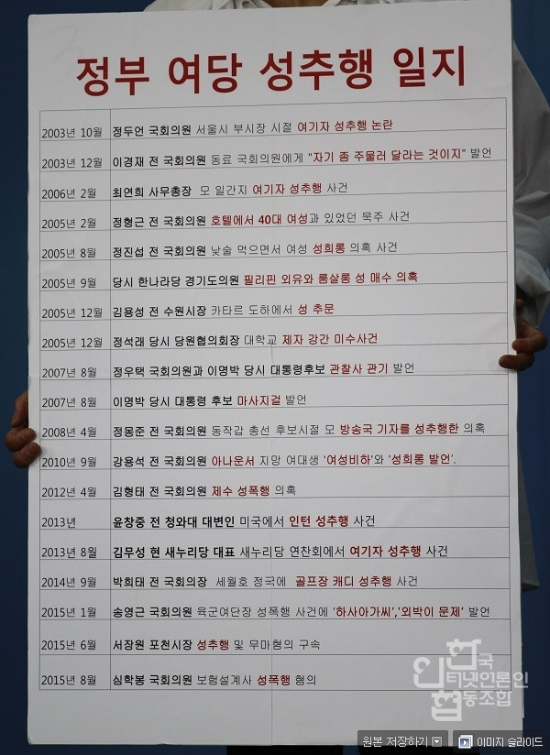 정부 여당 성추행 일지
2003년 10월 정두언 국회의원 서울시 부시장 시절 여기자 성추행 논란
2003년 12월 이경재 전 국회의원 동료 국회의원에게 "자기 좀 주물러 달라는 것이지" 발언
2006년 2월 최연희 사무총장 모 일간지 여기자 성추행 사건
2005년 2월 정형근 전 국회의원 호텔에서 40대 여성과 있었던 묵주 사건
2005년 8월 정진섭 전 국회의원 낮술 먹으면서 여성 성희롱 의혹 사건
2005년 9월 당시 한나라당 경기도의원 필리핀 외유와 룸살롱 성 매수 의혹
2005년 12월 김용성 전 수원시장 카타르 도하에서 성 추문
2005년 12월 정석래 당시 당원협의회장 대학교 제자 강간 미수사건
2007년 8월 정우택 국회의원과 이명박 당시 대통령후보 관찰사 관기 발언
2007년 8월 이명박 당시 대통령 후보 마사지걸 발언
2008년 4월 정몽준 전 국회의원 동작갑 총선 후보시절 모 방송국 기자를 성추행한 의혹
2010년 9월 강용석 전 국회의원 아나운서 지망 여대생 '여성비하'와 '성희롱 발언'.
2012년 4월 김형태 전 국회의원 제수 성폭행 의혹
2013년 윤창중 전 청와대 대변인 미국에서 인턴 성추행 사건
2013년 8월 김무성 현 새누리당 대표 새누리당 연찬회에서 여기자 성추행 사건
2014년 9월 박희태 전 국회의장 세월호 정국에 골프장 캐디 성추행 사건
2015년 1월 송영근 국회의원 육군여단장 성폭행 사건에 '하사아가씨','외박이 문제' 발언
2015년 6월 서장원 포천시장 성추행 및 무마형의 구속
2015년 8월 심학봉 국회의원 보험설계사 성폭행 혐의
한국
인터넷언론인
협동조합
원본 저장하기 이미지 슬라이드